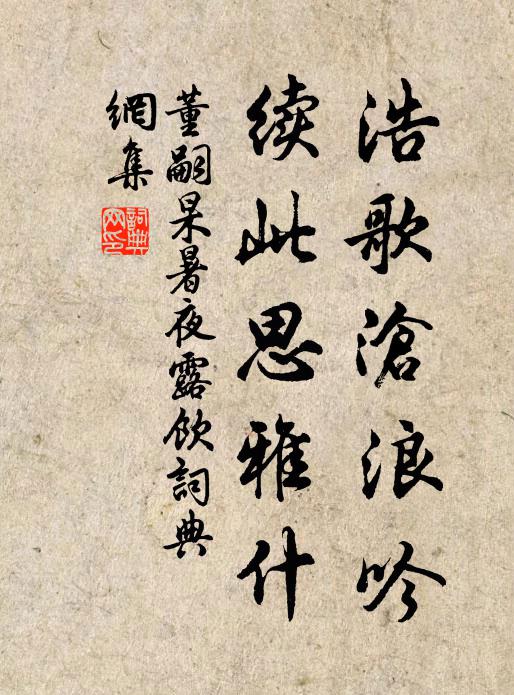 浩歌滄浪吟
续此思雅什
董嗣杲暑夜露飲詞典
網集
詞典网印